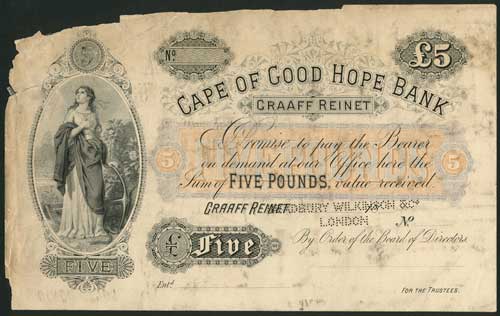 No.
£5
CAPE OF GOOD HOPE BANK
GRAAFF REINET
Promise to pay the Bearer
on demand at our Office here the
Sum of FIVE POUNDS, value received.
5
5
GRAAFF REINET
BRADBURY WILKINSON & Co
LONDON
No
By Order of the Board of Directors.
5
FIVE
Five
Entd
FOR THE TRUSTEES.